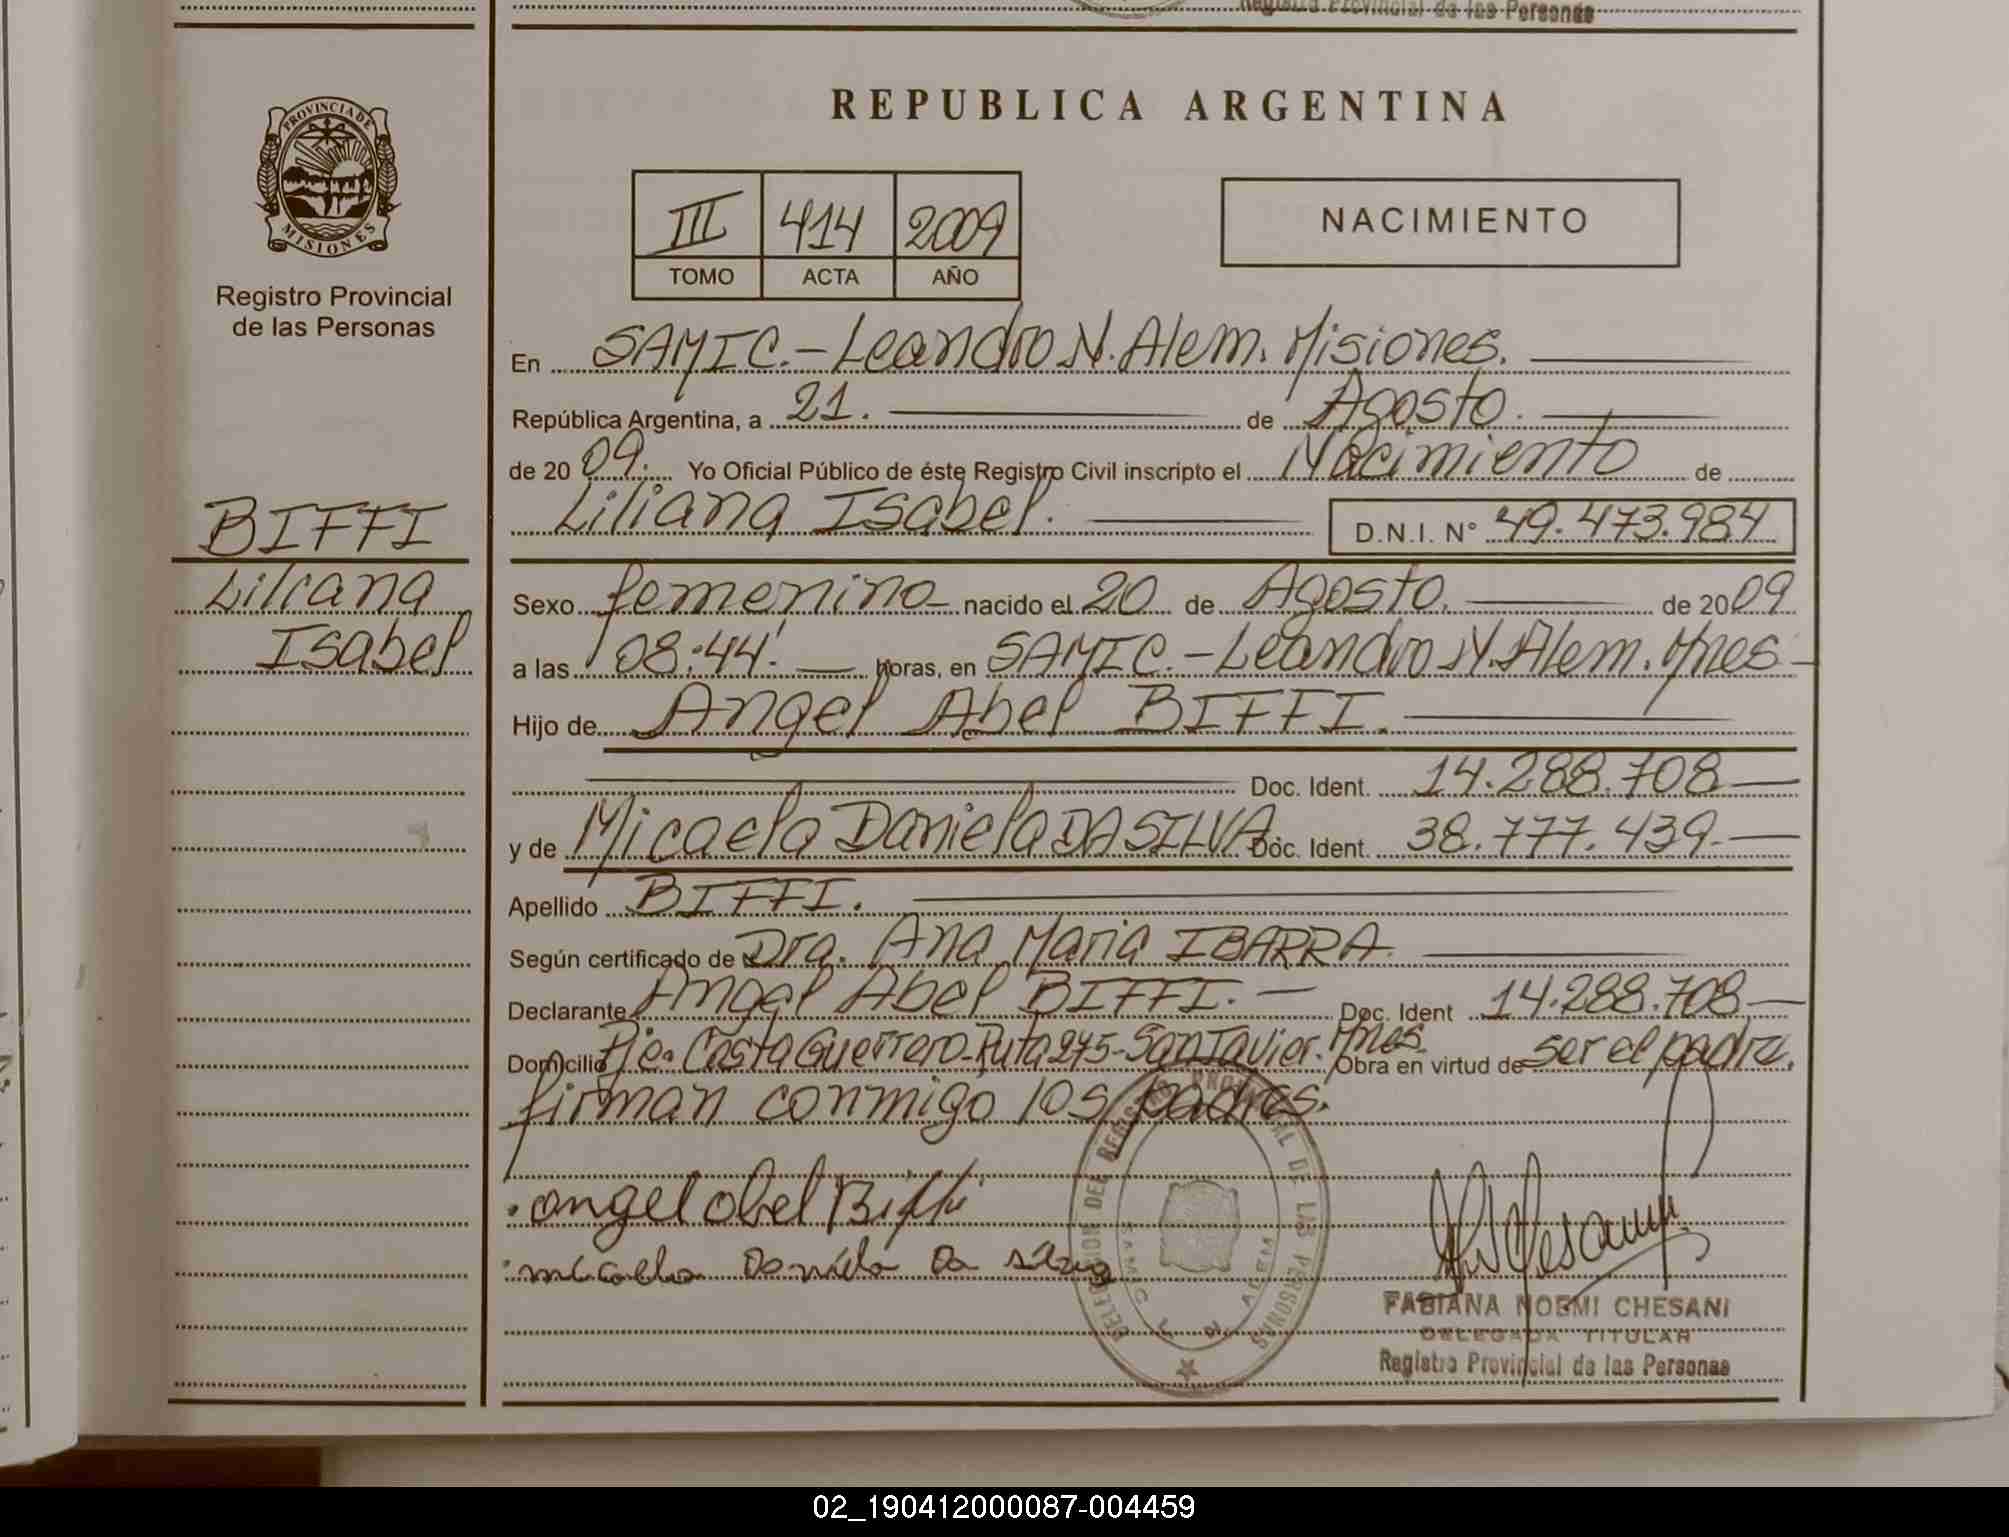 Registro Provincial de las Personas
PROVINCIA DE
MISIONES
Registro Provincial
de las Personas
BIFFI
Liliana
Isabel
REPUBLICA ARGENTINA
III 414 2009
TOMO ACTA AÑO
NACIMIENTO
En SAMIC.- Leandro N. Alem. Misiones.
República Argentina, a 21. de Agosto.
de 20 09. Yo Oficial Público de éste Registro Civil inscripto el Nacimiento de
Liliana Isabel. D.N.I. N° 49.473.984
Sexo femenino nacido el 20 de Agosto. de 20 09
a las 08:44'. horas, en SAMIC.- Leandro N. Alem. Mnes
Hijo de Angel Abel BIFFI.
Doc. Ident. 14.288.708
y de Micaela Daniela DA SILVA. Doc. Ident. 38.777.439.
Apellido BIFFI.
Según certificado de Dra. Ana Maria IBARRA.
Declarante Angel Abel BIFFI. Doc. Ident 14.288.708
Domicilio Pje. Costa Guerrero-Ruta 245-San Javier. Mnes. Obra en virtud de ser el padre.
firman conmigo los padres.
angel abel Biffi
micaela Daniela Da silva
DELEGACION DEL REGISTRO PROVINCIAL DE LAS PERSONAS
SAMIC L. N. ALEM
FABIANA NOEMI CHESANI
DELEGADA TITULAR
Registro Provincial de las Personas
02_190412000087-004459